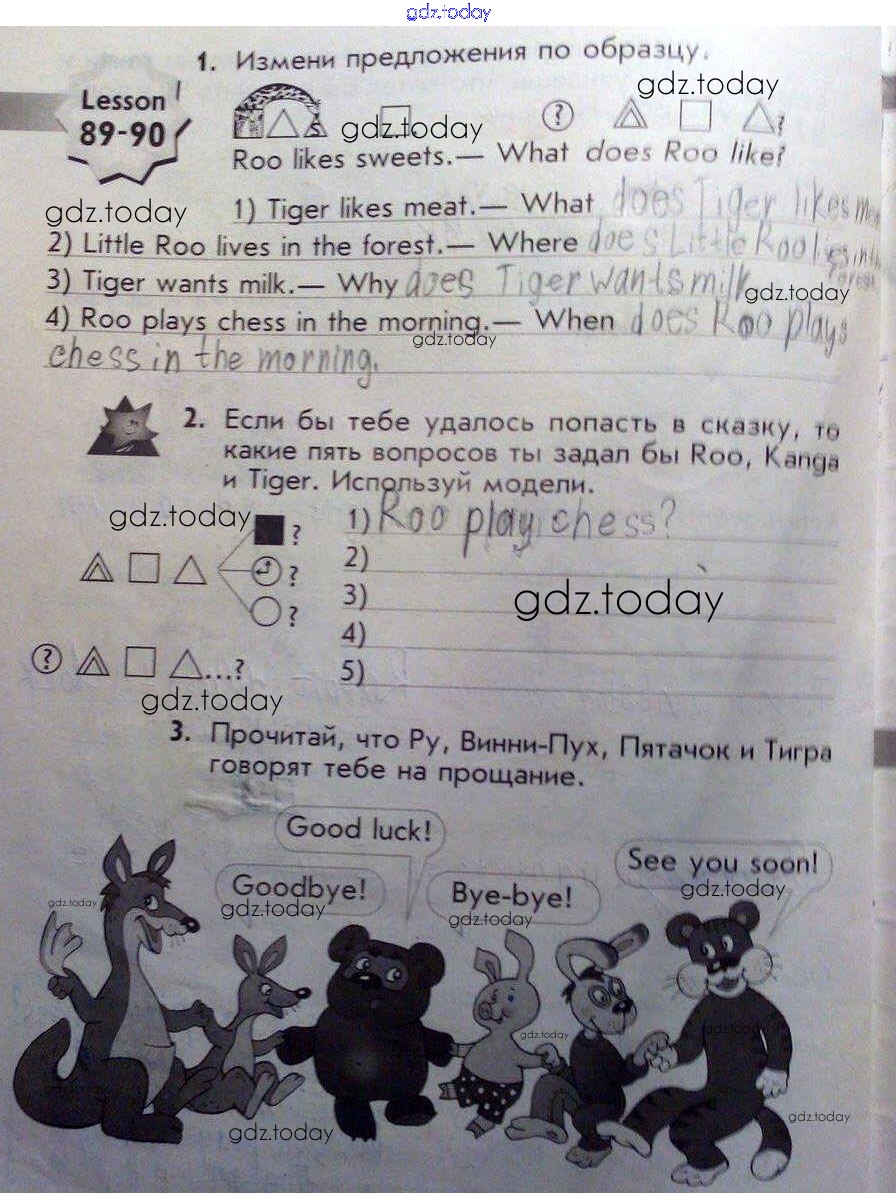 gdz.today
1. Измени предложения по образцу.
Lesson
89-90
gdz.today
S gdz.today
? ?
Roo likes sweets.— What does Roo like?
gdz.today
1) Tiger likes meat.— What does Tiger likes
2) Little Roo lives in the forest.— Where does Little Roo
3) Tiger wants milk.— Why does Tiger wants milk
gdz.today
4) Roo plays chess in the morning.— When does Roo plays
gdz.today
chess in the morning.
2. Если бы тебе удалось попасть в сказку, то
какие пять вопросов ты задал бы Roo, Kanga
и Tiger. Используй модели.
gdz.today
1) Roo play chess?
?
2)
?
3)
gdz.today
?
4)
? ...?
5)
gdz.today
3. Прочитай, что Ру, Винни-Пух, Пятачок и Тигра
говорят тебе на прощание.
Good luck!
See you soon!
gdz.today
Goodbye!
gdz.today
Bye-bye!
gdz.today
gdz.today
gdz.today
gdz.today
gdz.today
gdz.today
gdz.today